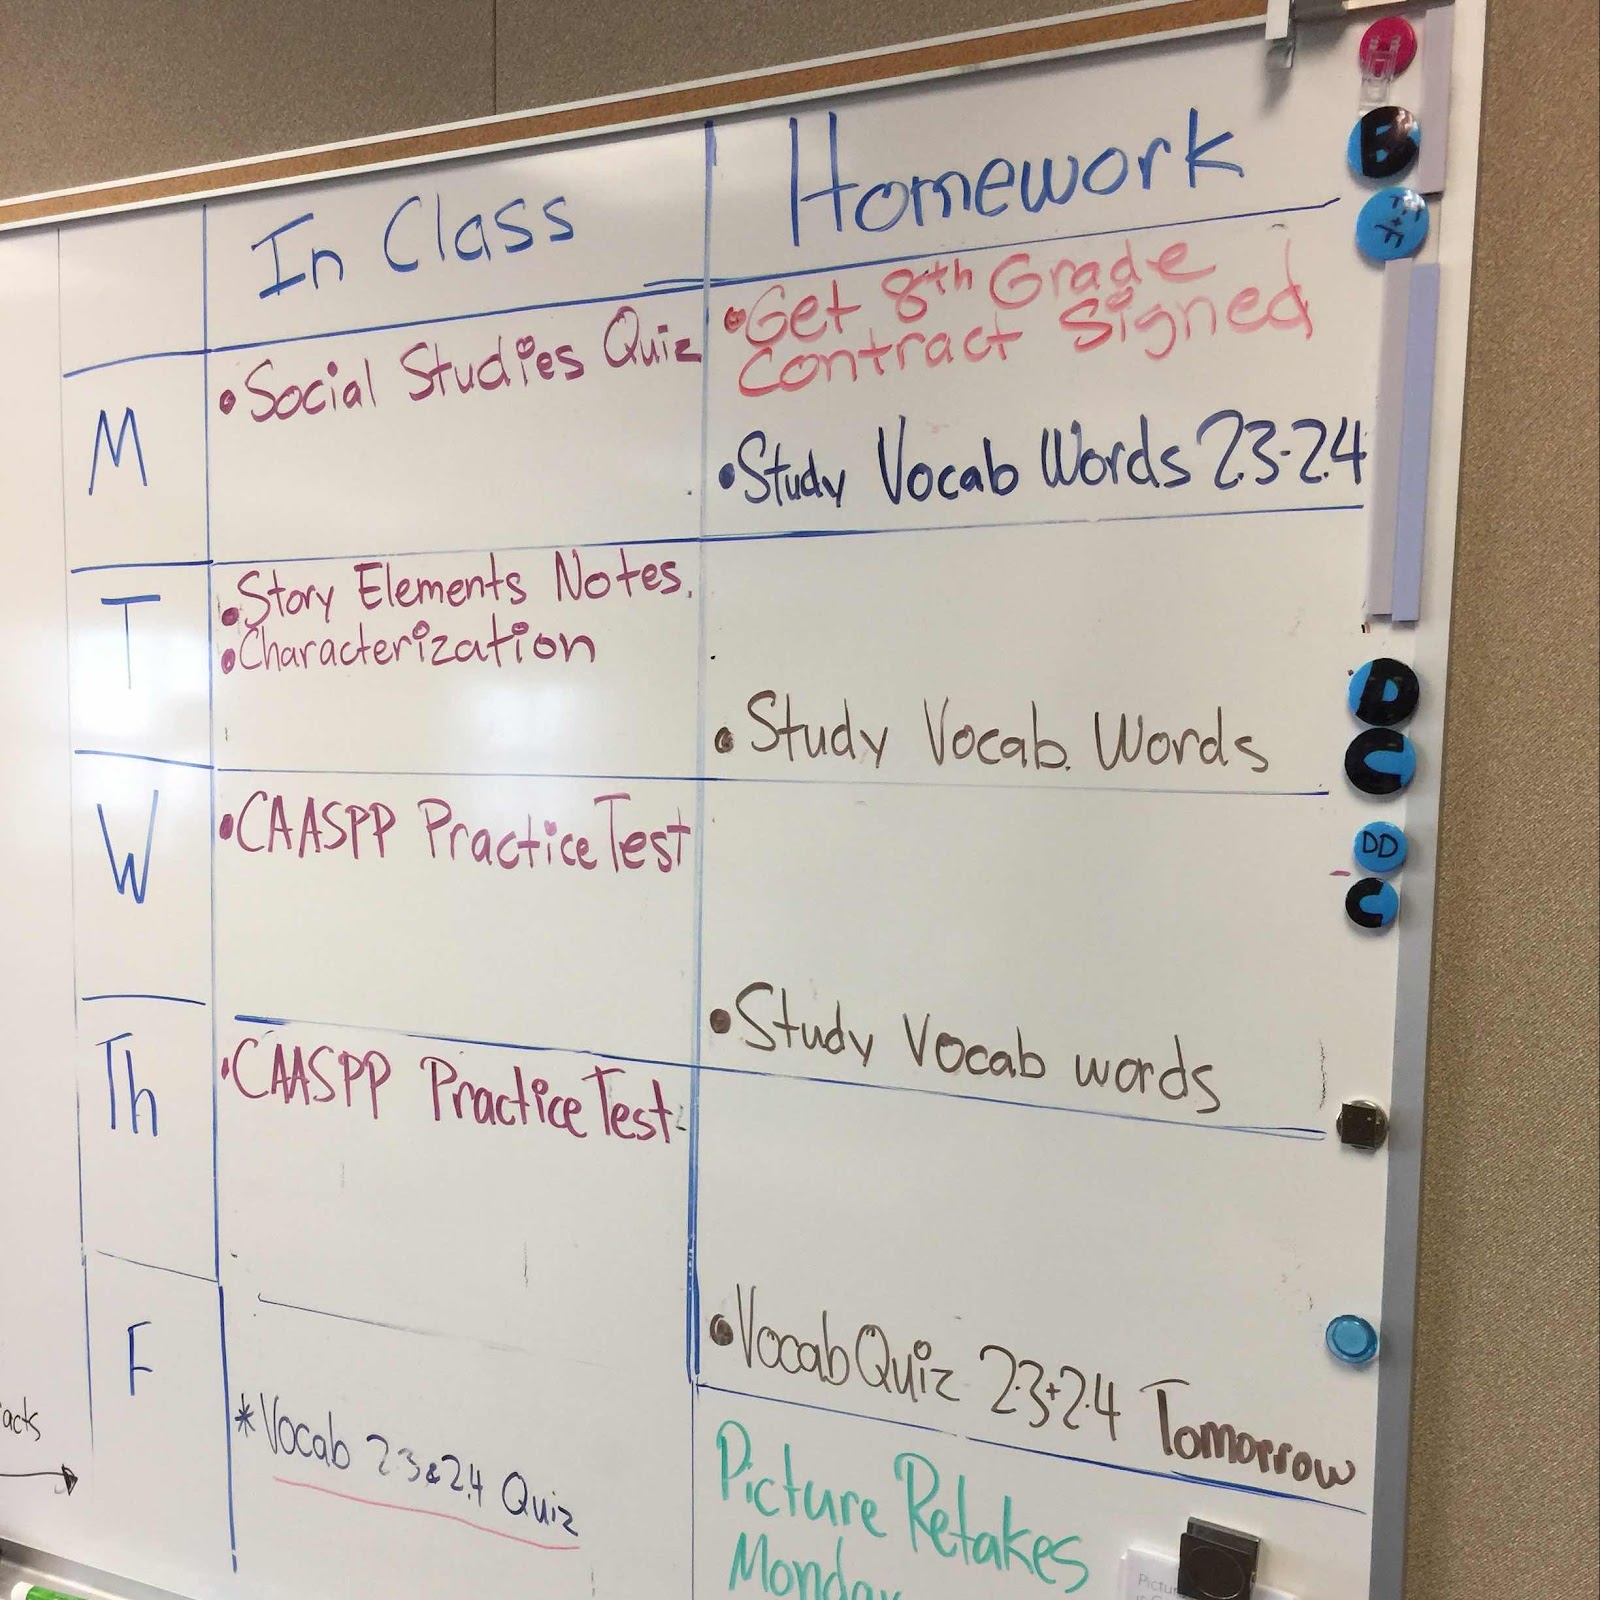 In Class
Homework
M
• Social Studies Quiz
• Get 8th Grade
Contract Signed
• Study Vocab Words 2.3-2.4
T
• Story Elements Notes.
• Characterization
• Study Vocab. Words
W
• CAASPP Practice Test
• Study Vocab words
Th
• CAASPP Practice Test
• Vocab Quiz 2.3+2.4 Tomorrow
F
* Vocab 2.3 & 2.4 Quiz
Picture Retakes
Monday
acts
H
B
D
C
DD
C